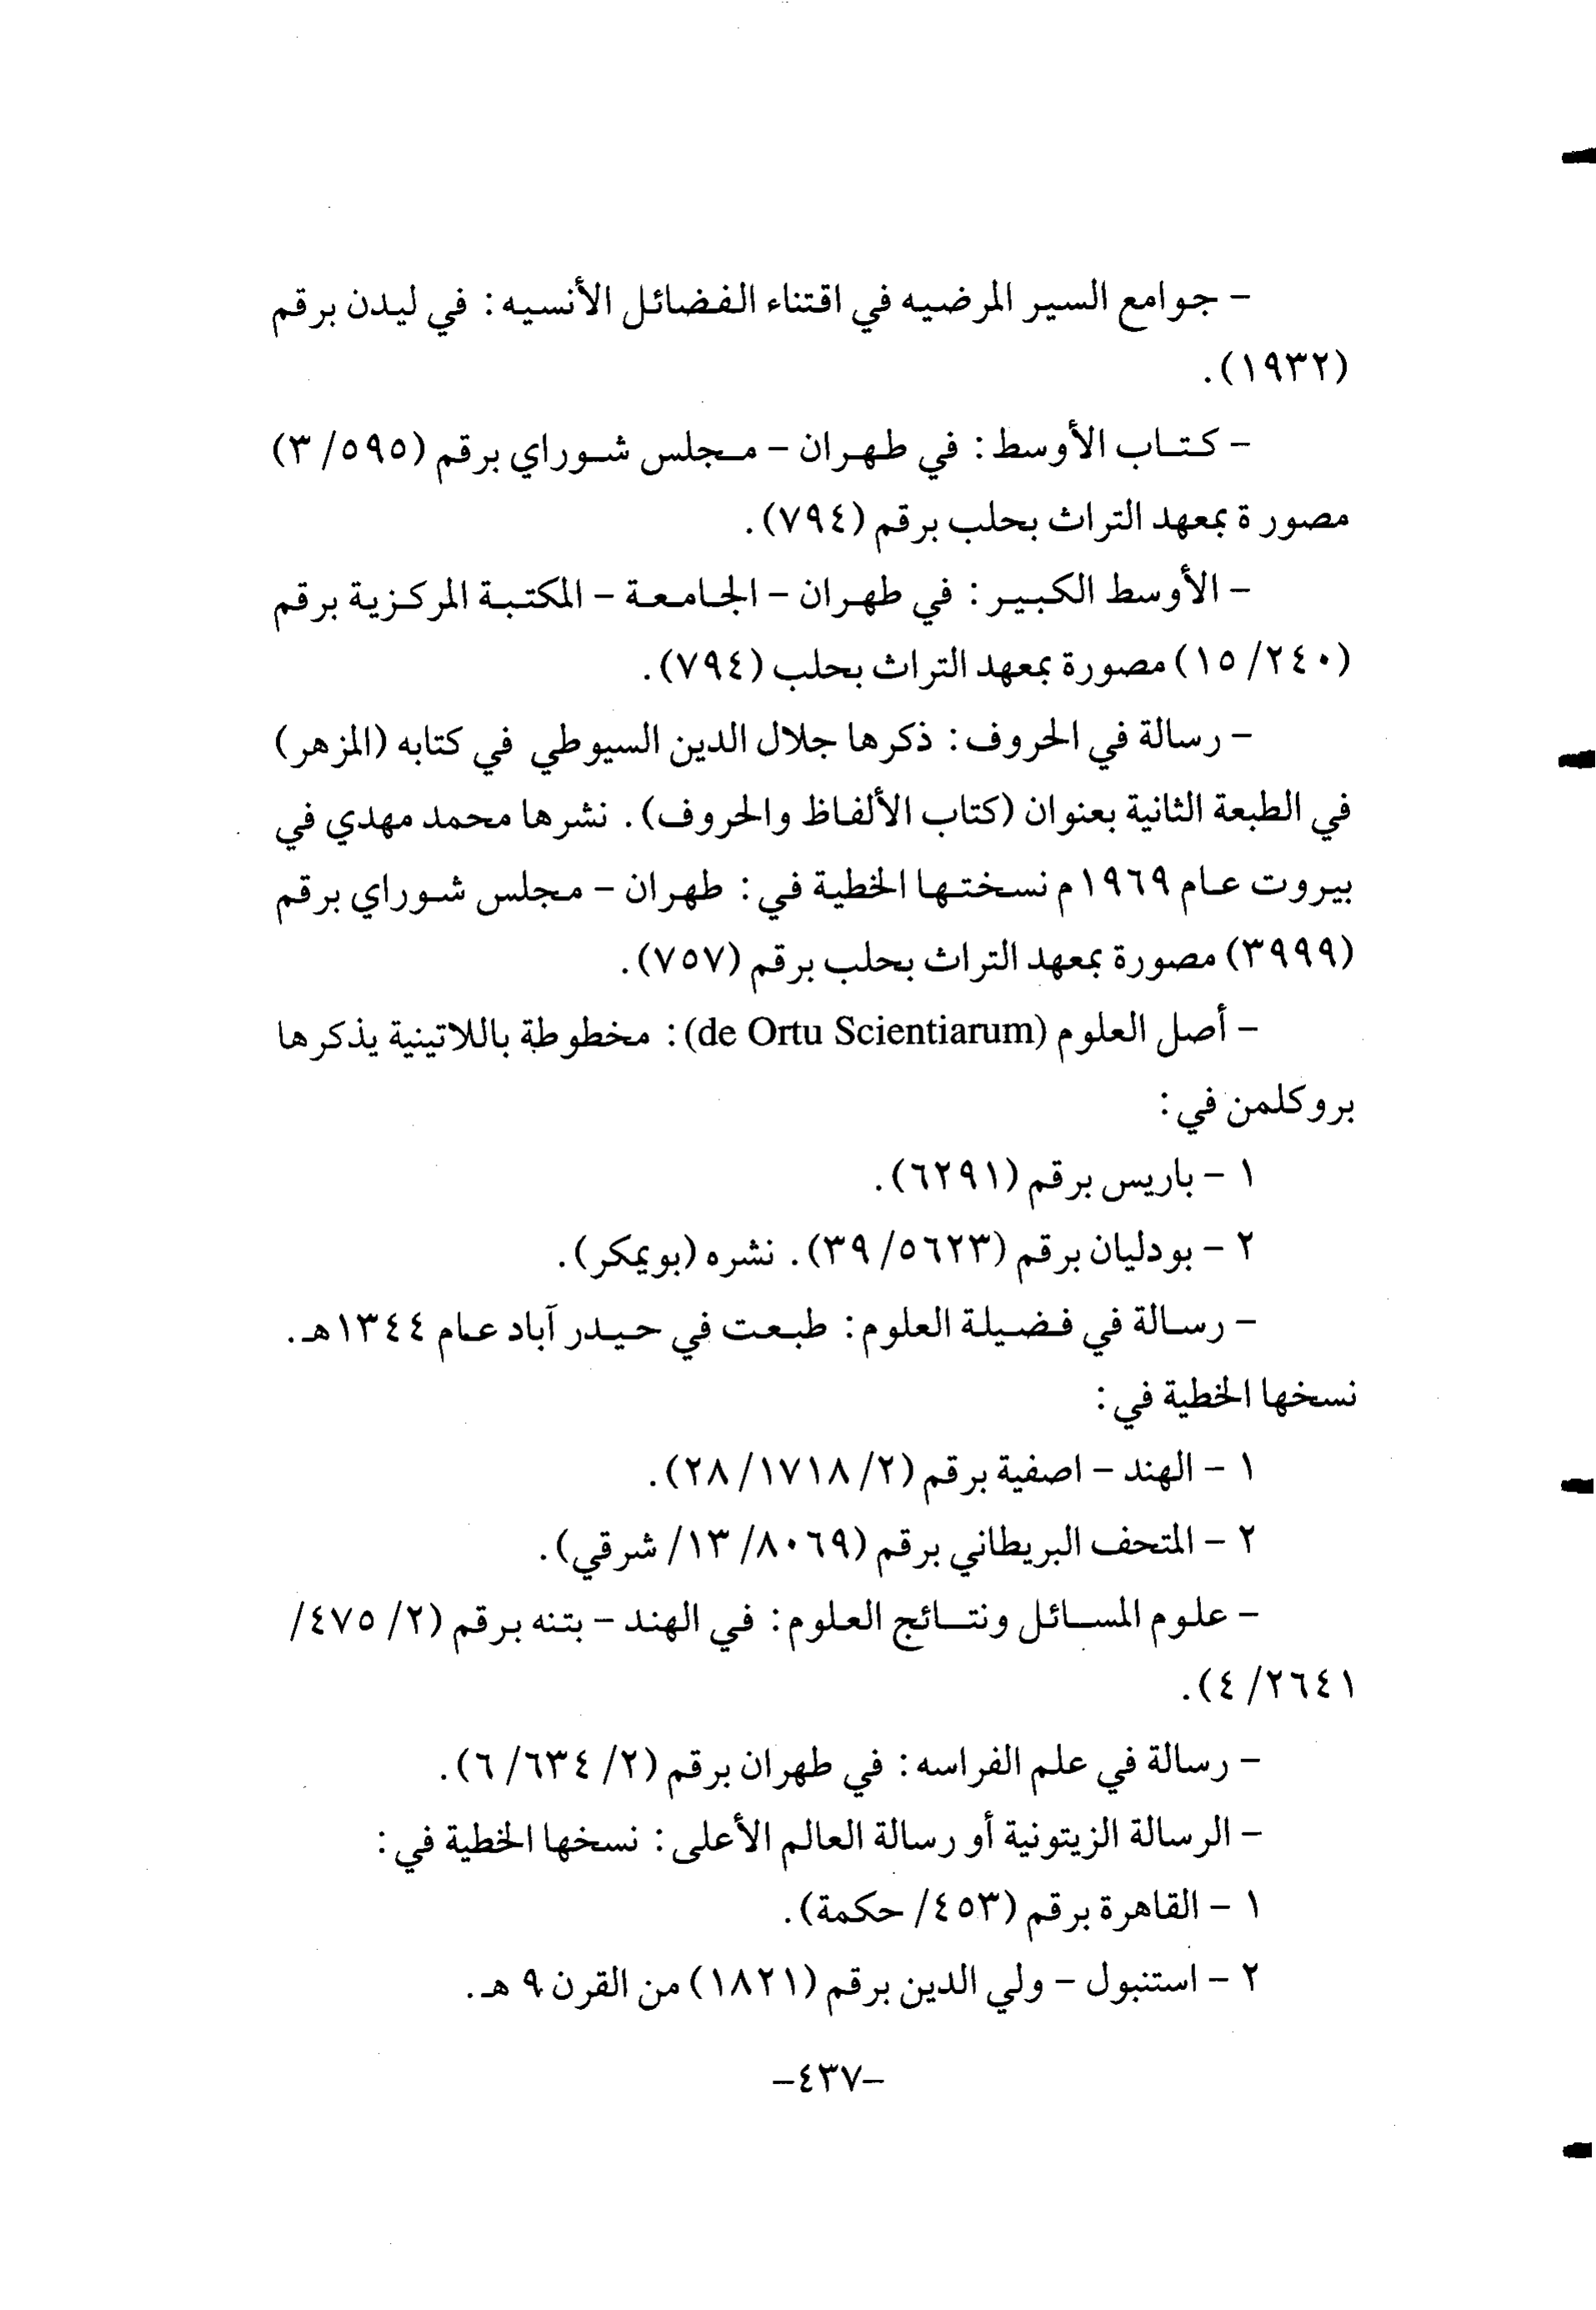 - جوامع السير المرضيه في اقتناء الفضائل الأنسيه: في ليدن برقم
(١٩٣٢).
- كتاب الأوسط: في طهران - مجلس شوراي برقم (٥٩٥/ ٣)
مصورة بمعهد التراث بحلب برقم (٧٩٤).
- الأوسط الكبير: في طهران - الجامعة - المكتبة المركزية برقم
(٢٤٠/ ١٥) مصورة بمعهد التراث بحلب (٧٩٤).
- رسالة في الحروف: ذكرها جلال الدين السيوطي في كتابه (المزهر)
في الطبعة الثانية بعنوان (كتاب الألفاظ والحروف). نشرها محمد مهدي في
بيروت عام ١٩٦٩م نسختها الخطية في: طهران - مجلس شوراي برقم
(٣٩٩٩) مصورة بمعهد التراث بحلب برقم (٧٥٧).
- أصل العلوم (de Ortu Scientiarum): مخطوطة باللاتينية يذكرها
بروكلمن في:
١ - باريس برقم (٦٢٩١).
٢ - بودليان برقم (٥٦٢٣/ ٣٩). نشره (بويمكر).
- رسالة في فضيلة العلوم: طبعت في حيدر آباد عام ١٣٤٤هـ.
نسخها الخطية في:
١ - الهند - اصفية برقم (٢/ ١٧١٨/ ٢٨).
٢ - المتحف البريطاني برقم (٨٠٦٩/ ١٣/ شرقي).
- علوم المسائل ونتائج العلوم: في الهند - بتنه برقم (٢/ ٤٧٥/
٢٦٤١/ ٤).
- رسالة في علم الفراسه: في طهران برقم (٢/ ٦٣٤/ ٦).
- الرسالة الزيتونية أو رسالة العالم الأعلى: نسخها الخطية في:
١ - القاهرة برقم (٤٥٣/ حكمة).
٢ - استنبول - ولي الدين برقم (١٨٢١) من القرن ٩ هـ.
-٤٣٧-